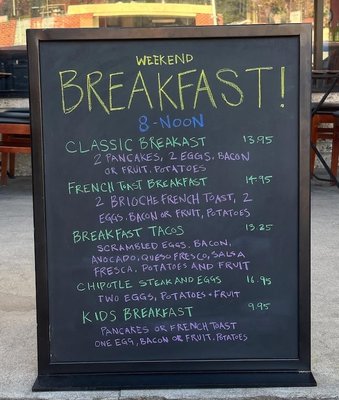 WEEKEND
BREAKFAST!
8-NOON
CLASSIC BREAKAST 13.95
2 PANCAKES, 2 EGGS, BACON
OR FRUIT, POTATOES
FRENCH TOAST BREAKFAST 14.95
2 BRIOCHE FRENCH TOAST, 2
EGGS. BACON OR FRUIT, POTATOES
BREAKFAST TACOS 13.25
SCRAMBLED EGGS, BACON,
AVOCADO, QUESO FRESCO, SALSA
FRESCA, POTATOES AND FRUIT
CHIPOTLE STEAK AND EGGS 16.95
TWO EGGS, POTATOES + FRUIT
KIDS BREAKFAST 9.95
PANCAKES OR FRENCH TOAST
ONE EGG, BACON OR FRUIT. POTATOES